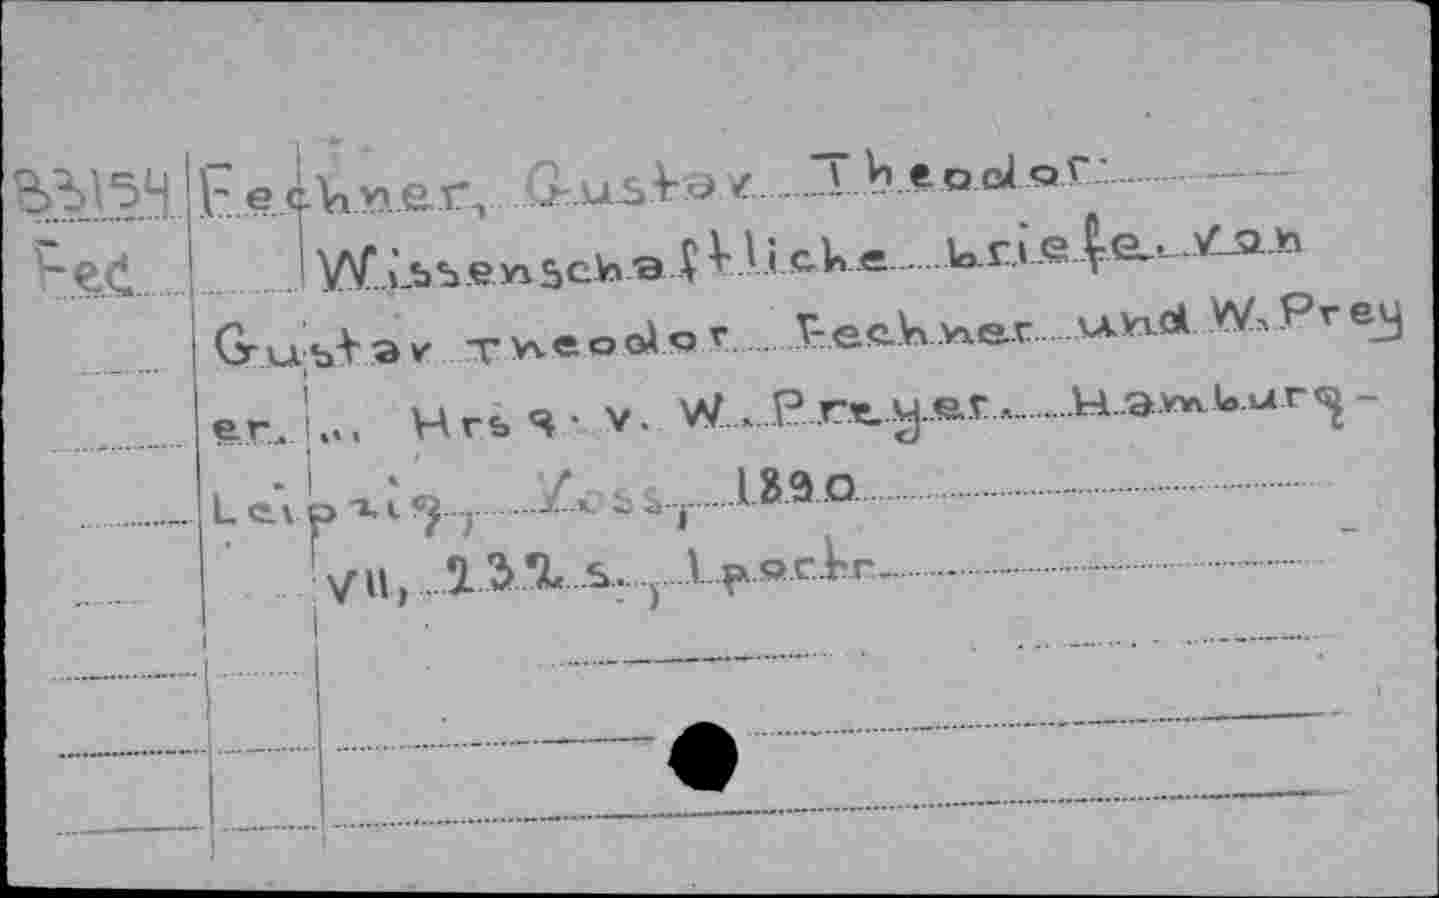 33154 Fechner, Gustav Theodor
Fec Wissenschaftliche briefe. Von
Gustav Theodor Fechner und W. Prey
er. ... Hrsg. v. W. Preyer. Hamburg-
Leipzig, Voss, 1890
VII, 232 s., 1 portr.